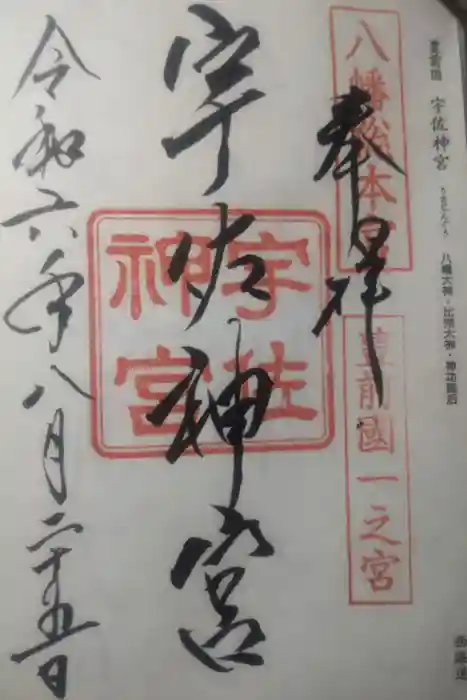 豊前国 宇佐神宮 うさじんぐう 八幡大神・比売大神・神功皇后
八幡総本宮
豊前國一之宮
奉拝
宇佐神宮
宇佐
神宮
令和六年八月二十五日